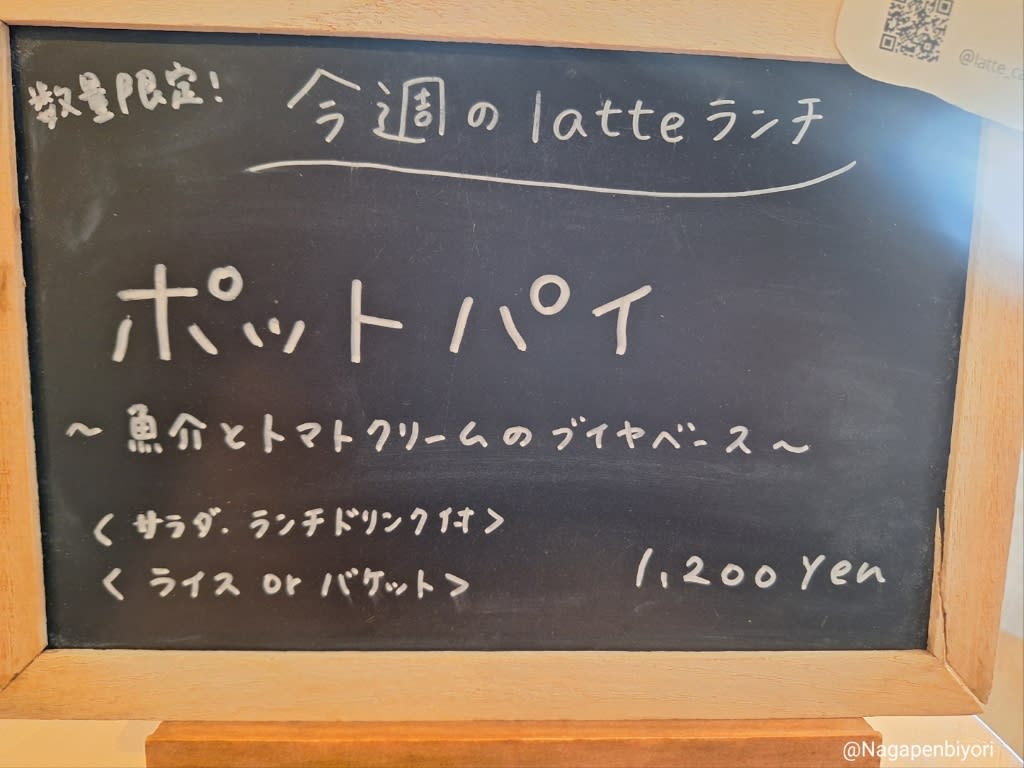 数量限定!
今週のlatteランチ
ポットパイ
~魚介とトマトクリームのブイヤベース~
<サラダ.ランチドリンク付>
<ライス or バケット>
1,200 Yen
@Nagapenbiyori